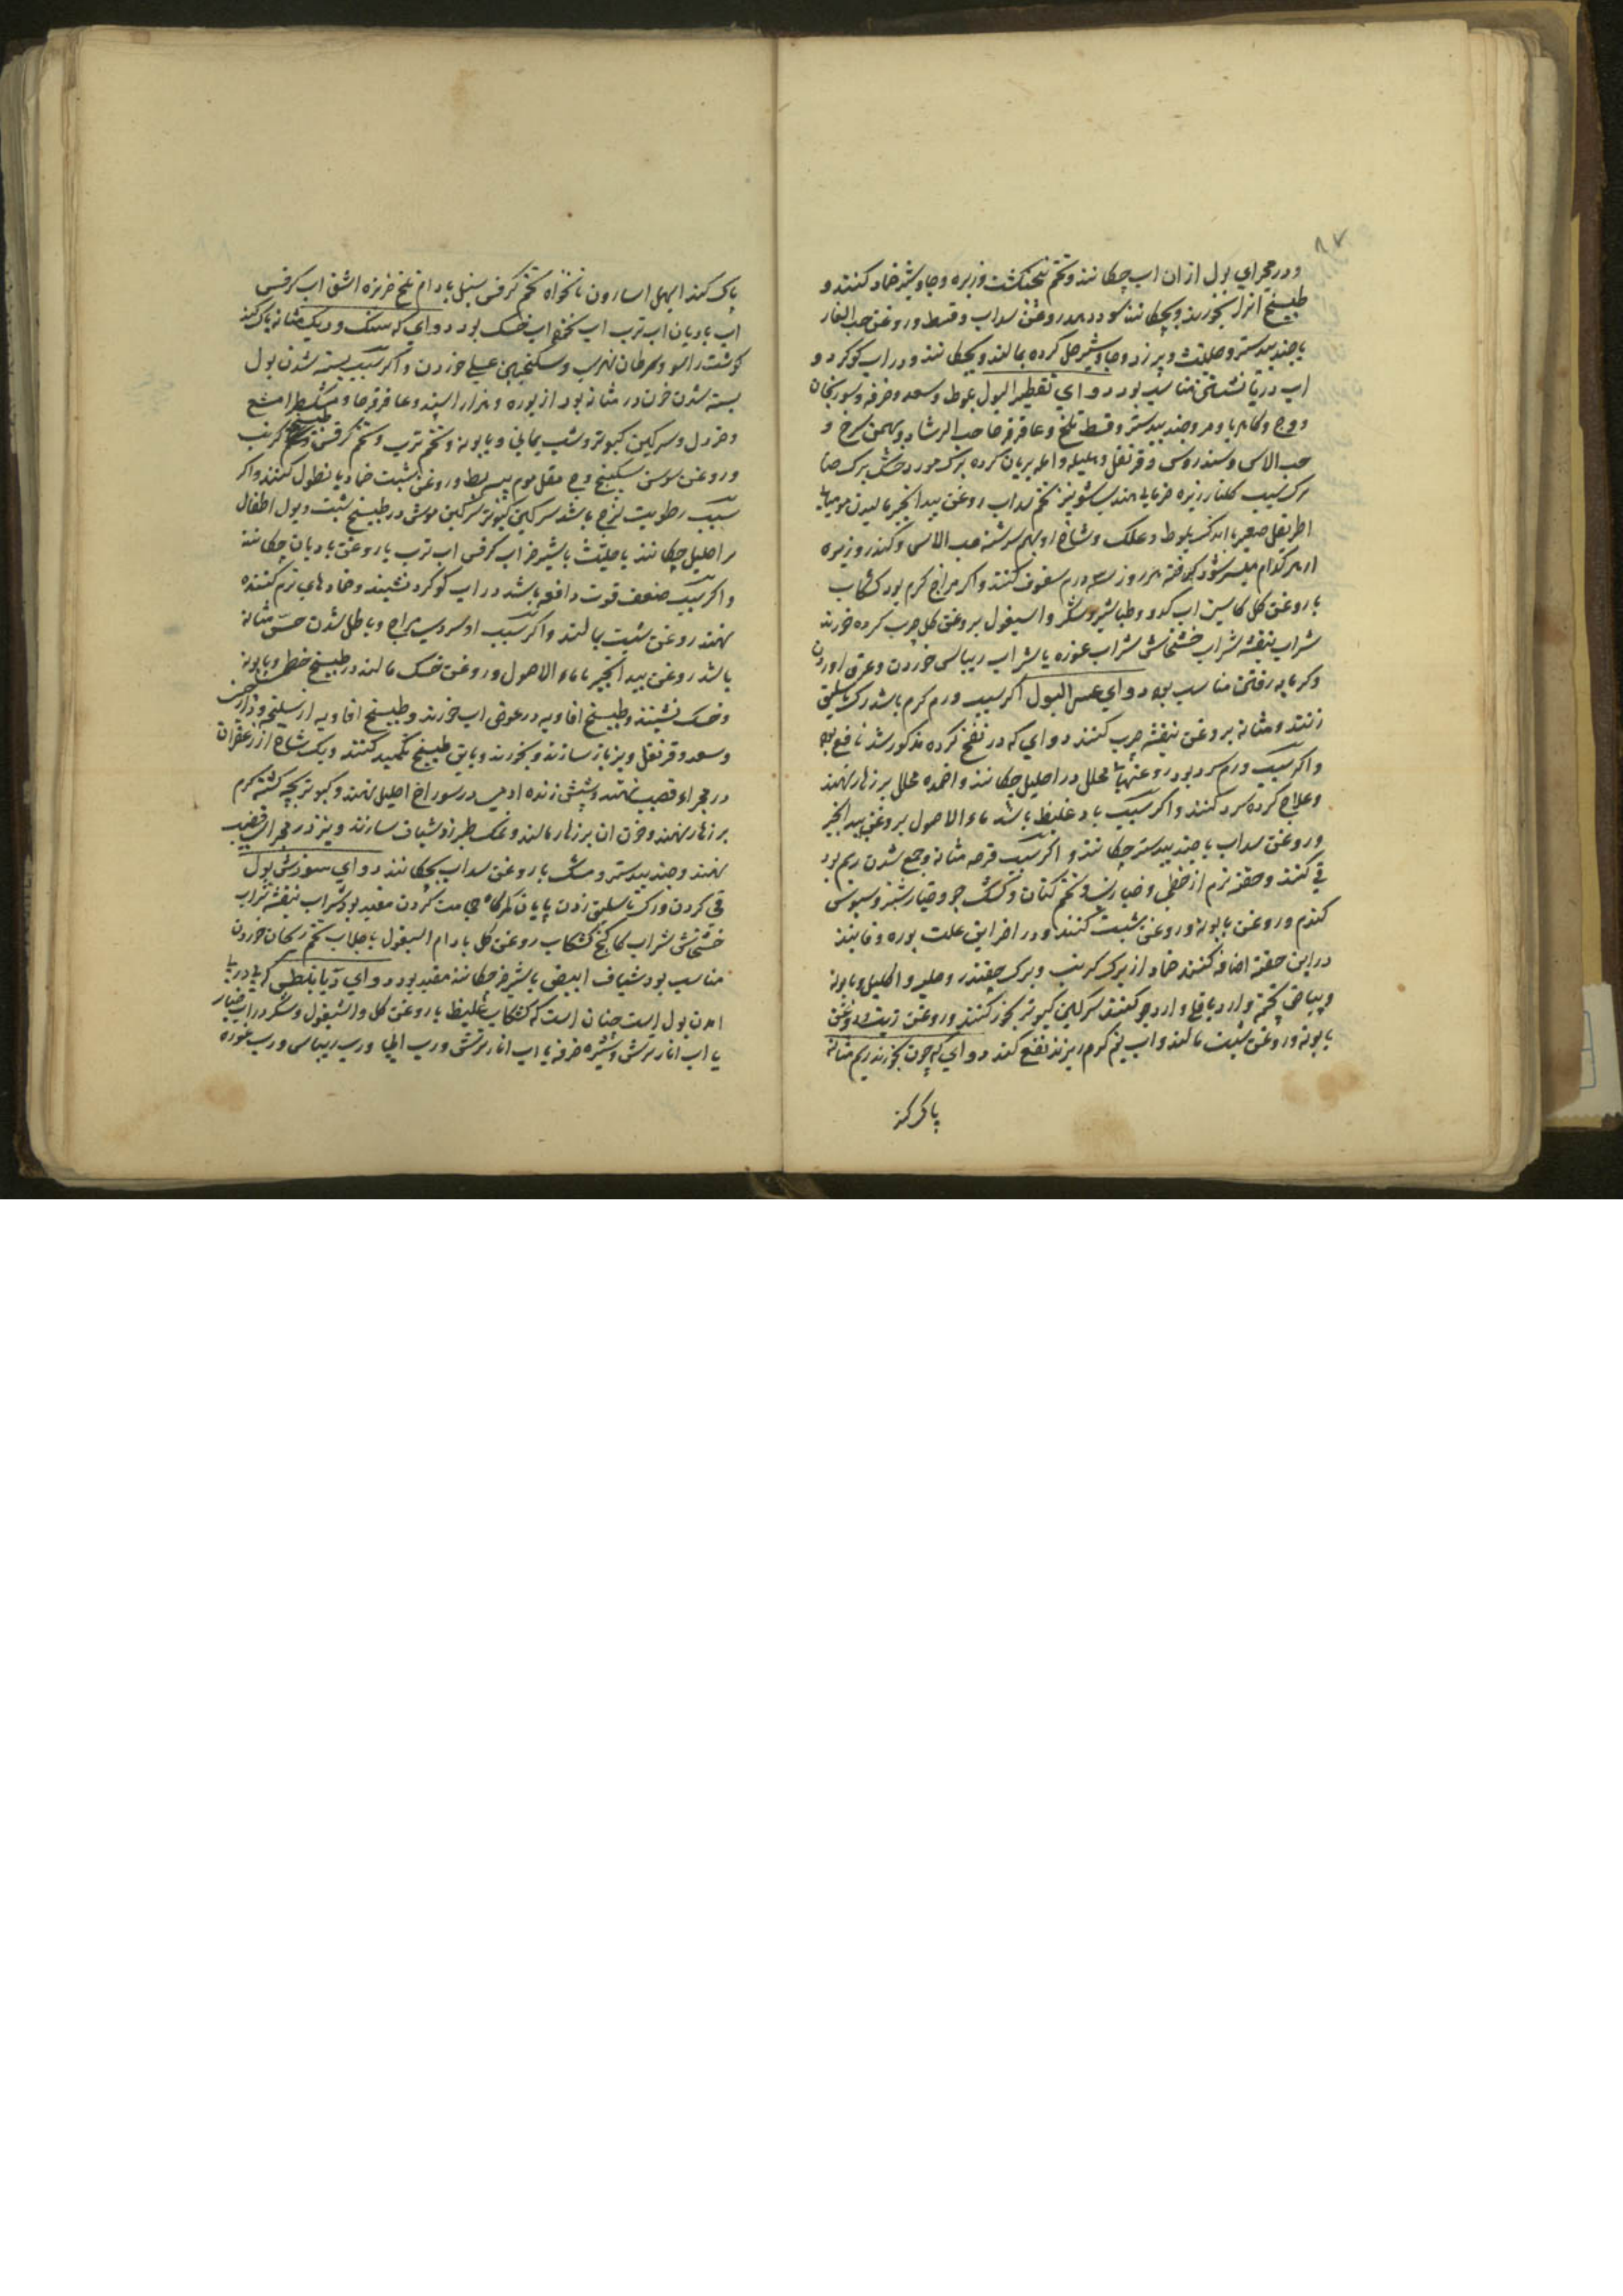 ۸۷
و در مجرای بول از ان اب چکانند و تخم پنجنکشت و زیره و جاوشیر ضماد کنند و
طبیخ انرا بخورند و بچکانند سود دهد روغن سداب و قسط و روغن حب الغار
با جندبیدستر و حلتیت و بیرزد و جاوشیر حل کرده بمالند و بچکانند و در اب کوکرد و
اب دریا نشستن مناسب بود دوای تقطیر البول بلوط و سعد و خرفه و سورنجان
و وج و کاه ربا و مر و جندبیدستر و قسط تلخ و عاقرقرحا حب الرشاد و بهمن سرخ و
حب الاس و سندروس و قرنفل و هلیله و امله بریان کرده برک مورد خشک برک حنا
برک سیب کلنار زیره خرمای هند شونیز تخم سداب روغن بیدانجیر مالیدن مومیا
اطریفل صغیر با اندک بلوط و علک و شاه بهم سرشته حب الاس و کندر و زیره
از هر کدام میسر شود کوفته هر روز سه درم سفوف کنند و اکر مزاج کرم بود کشکاب
با روغن کل کاسنی اب کدو و طباشیر و شکر و اسپغول بروغن کل چرب کرده خورند
شراب بنفشه شراب خشخاش شراب غوره یا شراب ریباس خوردن و عرق اوردن
و کرمابه رفتن مناسب بود دوای عسر البول اکر سبب ورم کرم باشد رک باسلیق
زنند و مثانه بروغن بنفشه چرب کنند دوای که در نفخ کرده مذکور شد نافع بود
و اکر سبب ورم سرد بود روغنهای محلل در احلیل چکانند و اضمده محلل بر زهار نهند
و علاج کرده سرد کنند و اکر سبب باد غلیظ باشد ماء الاصول بروغن بیدانجیر
و روغن سداب با جندبیدستر چکانند و اکر سبب قرحه مثانه و جمع شدن ریم بود
قی کنند و حقنه نرم از خطمی و خبازی و تخم کتان و کشک جو و خیارشنبر و سبوس
کندم و روغن بابونه و روغن شبت کنند و در اخر این علت بوره و فانیذ
در این حقنه اضافه کنند ضماد از برک کرنب و برک چقندر و حلبه و اکلیل و بابونه
و پیاض پخته و ارد باقلا و ارد جو کنند سرکین کبوتر بخور کنند و روغن زیت و روغن
بابونه و روغن شبت مالند و اب نیم کرم ریزند نفع کند دوای که چون بخورند ریم مثانه
پاک کند
پاک کند ابهل اسارون نانخواه تخم کرفس سنبل بادام تلخ خربزه اشق اب کرفس
اب بادیان اب ترب اب نخود اب خسک بود دوای که سنک و ریک مثانه پاک کند
کوشت راسو و سرطان نهری و سکنجبین عسلی خوردن و اکر سبب بسته شدن بول
بسته شدن خون در مثانه بود از بوره و هزار اسپند و عاقرقرحا و مشکطرامشیع
و خردل و سرکین کبوتر و شب یمانی و بابونه و تخم ترب و تخم کرفس و طبیخ کرنب
و روغن سوسن سکبینج وج مقل موم پیه بط و روغن شبت ضماد یا نطول کنند و اکر
سبب رطوبت لزج باشد سرکین کبوتر سرکین موش در طبیخ شبت و بول اطفال
بر احلیل چکانند یا حلتیت با شیر خر اب کرفس اب ترب یا روغن بادیان چکانند
و اکر سبب ضعف قوت دافعه باشد در اب کوکرد نشینند و ضمادهای نرم کننده
نهند روغن شبت بمالند و اکر سبب او سردی مزاج و باطل شدن حس مثانه
باشد روغن بیدانجیر با ماء الاصول و روغن خسک مالند در طبیخ خطمی و بابونه
و خسک نشینند و طبیخ افاویه در عوض اب خورند و طبیخ افاویه از سلیخه و دارچینی
و سعد و قرنفل و بزباز سازند و بخورند و باین طبیخ تکمید کنند و یک شاخ از زعفران
در مجراء قضیب نهند و شپش زنده ادمی در سوراخ احلیل نهند و کبوتر بچه کشته کرم
بر زهار نهند و خون ان بر زهار مالند و نمک طبرزد شیاف سازند و نیز در مجرا القضیب
نهند و جندبیدستر و مشک با روغن سداب بچکانند دوای سوزش بول
قی کردن و رک باسلیق زدن پایان کمرکاه حجامت کردن مفید بود شراب بنفشه شراب
خشخاش شراب کاکنج کشکاب روغن کل بادام اسپغول با جلاب تخم ریحان خوردن
مناسب بود شیاف ابیض با شیر خر چکانند مفید بود دوای دیابیطس که پیاپی
امدن بول است چنان است که کشکاب غلیظ با روغن کل و اسپغول و شکر در اب خیار
یا اب انار ترش و شیره خرفه یا اب انار ترش و رب ابی و رب ریباس و رب غوره